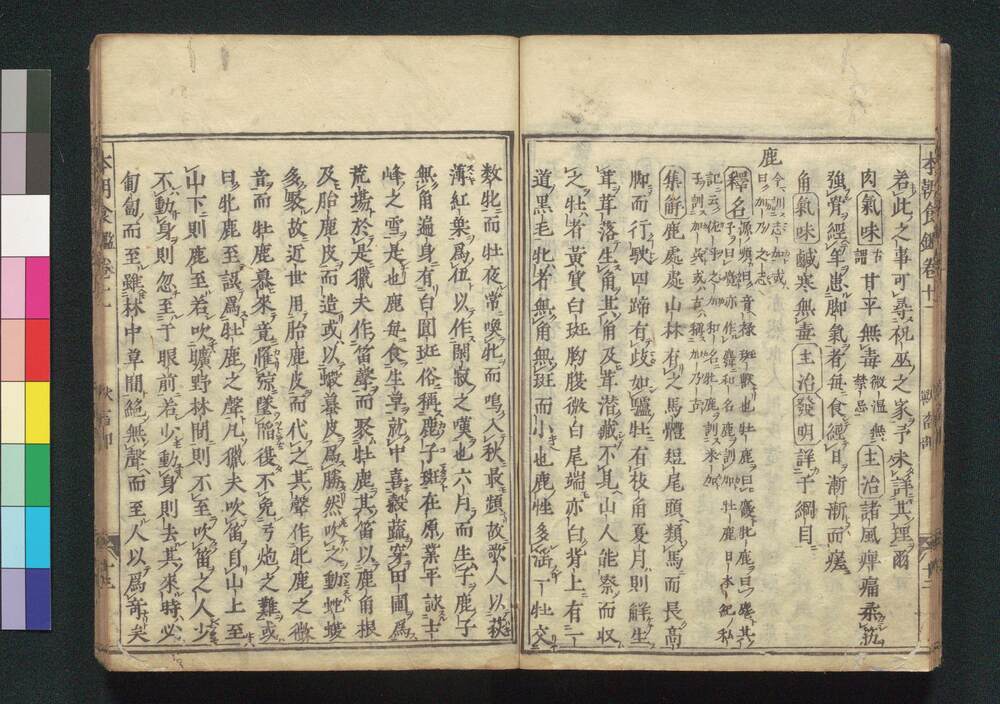 本朝食鑑卷十一 獸畜部
若此之事可尋祝巫之家予未詳其理爾
肉氣味甘平無毒微溫無禁忌主治諸風痺痛柔筋
強骨經年患脚氣者每食經日漸漸而瘥
角氣味鹹寒無毒主治發明詳于綱目
鹿
釋名
集解鹿處處山林有之馬體短尾頭類馬而長高
脚而行駛四蹄有歧如驢牡有枝角夏月則解生
茸茸落生角其角及茸潜藏不見山人能察而収
之牡者黃質白斑胸腹微白尾端亦白背上有一
道黑毛牝者無角無斑而小也鹿性多淫一牡交
數牝而牡夜常喚牝而鳴入秋最頻故歌人以荻
薄紅葉爲伍以作閑寂之嘆也六月而生子鹿子
無角遍身有白圓斑俗稱鹿子斑在原業平詠士
峰之雪是也鹿每食生草就中喜穀蔬穿田圃爲
荒場於是獵夫作笛聲而聚牡鹿其笛以鹿角根
及胎鹿皮而造或以蝦蟇皮爲勝然吹之動蛇蝮
多聚故近世用胎鹿皮而代之其聲作牝鹿之微
音而牡鹿慕來竟罹
曰牝鹿至誤爲牡鹿之聲凡獵夫吹笛自山上至
山下則鹿至若吹曠野林間則不至吹笛之人少
不動身則忽至于眼前若少動身則去其來時必
匍匐而至雖林中草間絕無聲而至人以爲奇矣
本朝食鑑卷十一